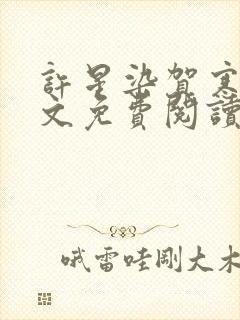 許星染賀寒
文免費閱讀
哦雷哇剛大木